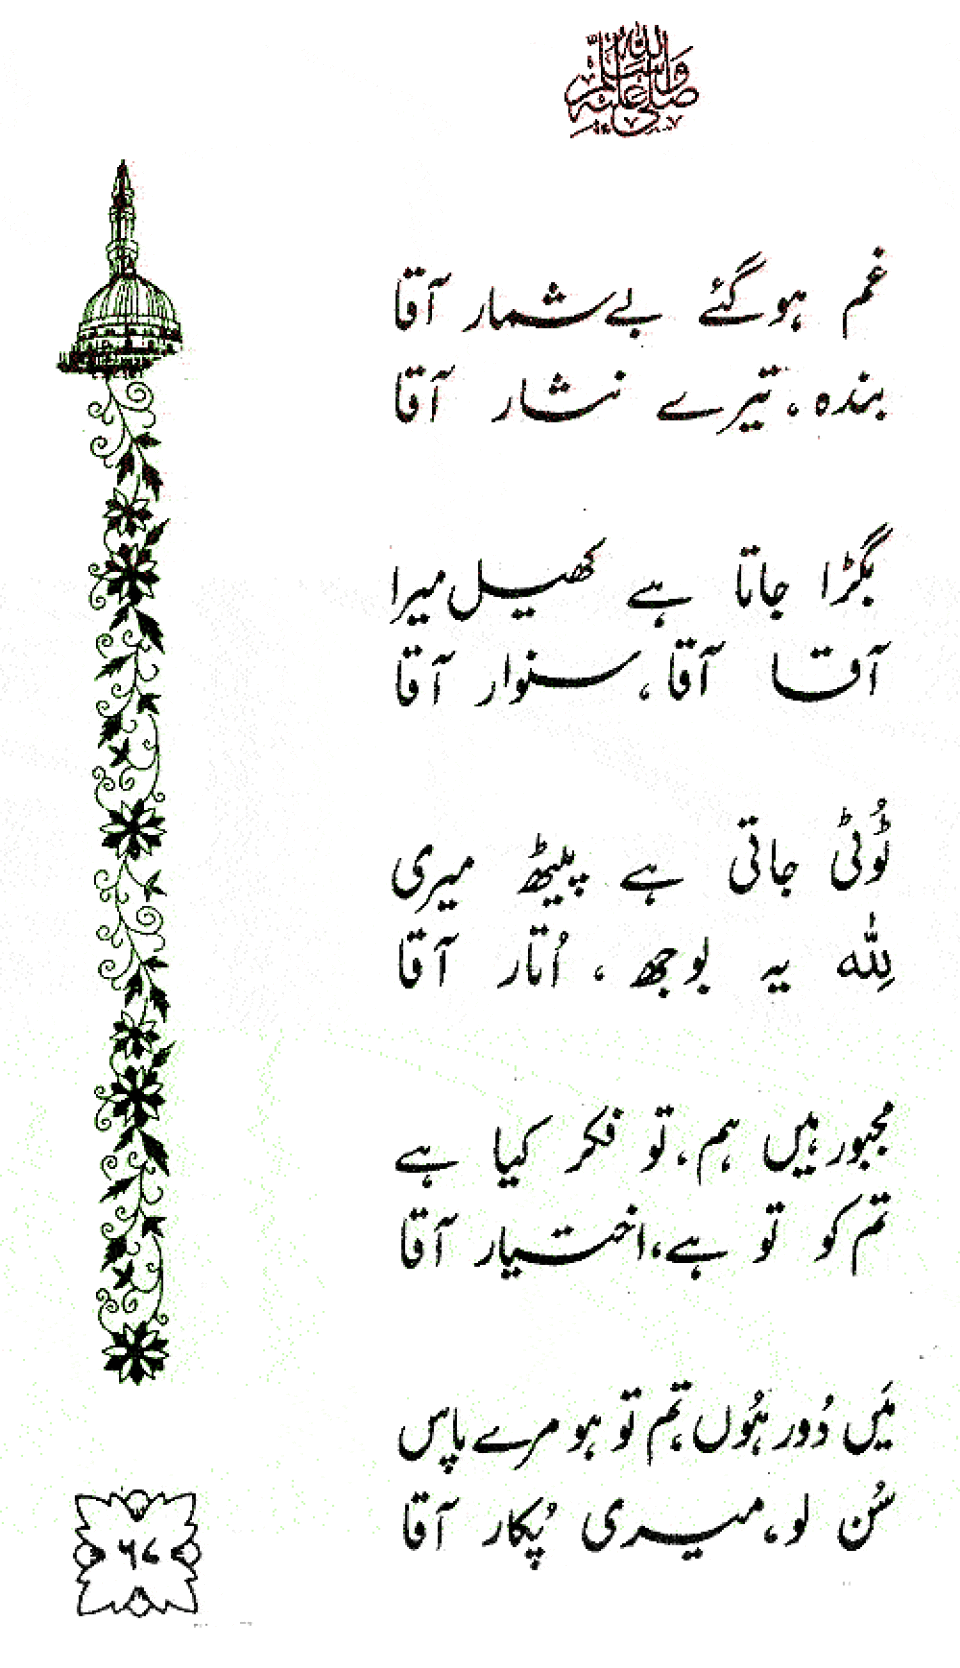 صلی اللہ علیہ وسلم
غم ہوگئے بےشمار آقا
بندہ، تیرے نثار آقا
بگڑا جاتا ہے کھیل میرا
آقا آقا، سنوار آقا
ٹُوٹی جاتی ہے پیٹھ میری
لِلّٰہ یہ بوجھ، اُتار آقا
مجبور ہیں ہم، تو فکر کیا ہے
تم کو تو ہے، اختیار آقا
مَیں دُور ہُوں، تم تو ہو مرے پاس
سُن لو، میری پُکار آقا
۶۷